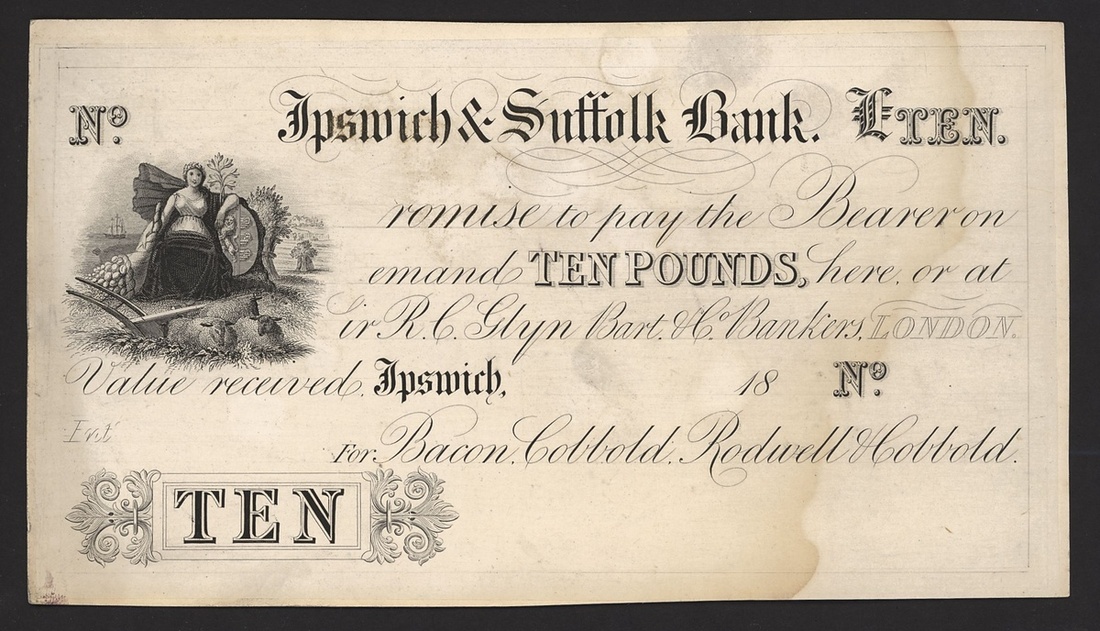 No. Ipswich & Suffolk Bank. £TEN.
romise to pay the Bearer on
emand TEN POUNDS, here, or at
ir R. C. Glyn Bart. & Co. Bankers, LONDON.
Value received. Ipswich, 18 No.
Ent
For Bacon, Cobbold, Rodwell & Cobbold.
TEN